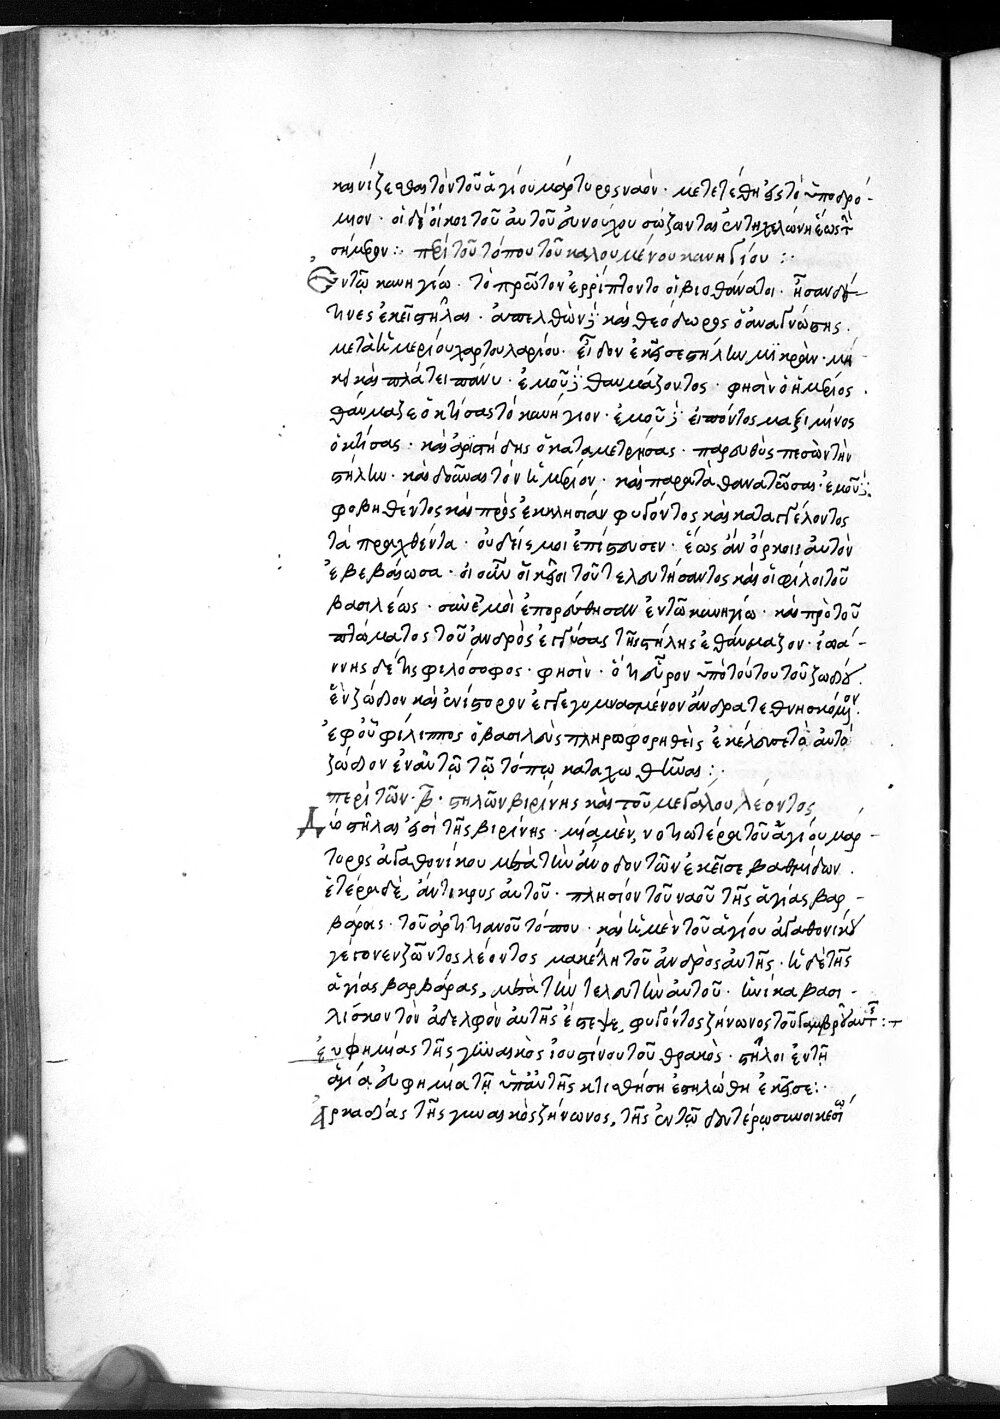 καινίζεσθαι τὸν τοῦ ἁγίου μάρτυρος ναὸν · μετετέθη εἰς τὸ ὑποδρό-
μιον · οἱ δὲ οἶκοι τοῦ αὐτοῦ εὐνούχου σώζονται ἐν τῇ χελώνῃ ἕως τῆς
σήμερον :· περὶ τοῦ τόπου τοῦ καλουμένου κυνηγίου :·
Ἐν τῷ κυνηγίῳ · τὸ πρῶτον ἐρρίπτοντο οἱ βιοθάνατοι · ἦσαν δέ
τινες ἐκεῖ στῆλαι · ἀπελθὼν καὶ θεόδωρος ὁ ἀναγνώστης ·
μετὰ ἱμερίου χαρτουλαρίου · εἶδον ἐκεῖσε στήλην μικρὰν · μή-
κει καὶ πλάτει πάνυ · ἐμοῦ δὲ θαυμάζοντος · φησὶν ὁ ἡμέριος ·
θαύμαζε ὁ κτίσας τὸ κυνήγιον · ἐμοῦ δὲ εἰπόντος μαξιμίνος
ὁ κτίσας · καὶ ἀριστείδης ὁ καταμετρήσας · παρευθὺς πεσὼν τὴν
στήλην · καὶ δοῦναι τὸν ἱμέριον · καὶ παραυτὰ θανατῶσαι · ἐμοῦ δὲ
φοβηθέντος καὶ πρὸς ἐκκλησίαν φυγόντος καὶ καταγγέλοντος
τὰ πραχθέντα · οὐδείς μοι ἐπίστευσεν · ἕως ἂν ὅρκοις αὐτὸν
ἐβεβαίωσα · οἱ οὖν οἰκεῖοι τοῦ τελευτήσαντος καὶ οἱ φίλοι τοῦ
βασιλέως · σὺν ἐμοὶ ἐπορεύθησαν ἐν τῷ κυνηγίῳ · καὶ πρὸ τοῦ
πτώματος τοῦ ἀνδρὸς ἐγγύσας τῆς στήλης ἐθαύμαζον · ἰωά-
ννης δέ τις φιλόσοφος · φησὶν · ὅτι εὗρον ὑπὸ τούτου τοῦ ζωδίου
ἐν ζώδιον καὶ ἐνίστορον ἐγγεγυμνασμένον ἄνδρα τεθνησκόμενον ·
ἐφ' οὗ φίλιππος ὁ βασιλεὺς πληροφορηθεὶς ἐκέλευσε τὸ αὐτὸ
ζώδιον ἐν αὐτῷ τῷ τόπῳ καταχωσθῆναι :·
περὶ τῶν · β · στηλῶν βιρίνης καὶ τοῦ μεγάλου λέοντος
Δύο στῆλαι εἰσὶ τῆς βιρίνης · μία μὲν, νοτιωτέρα τοῦ ἁγίου μάρ-
τυρος ἀγαθονίκου μετὰ τὴν ἄνοδον τῶν ἐκεῖσε βαθμίδων ·
ἑτέρα δὲ, ἄντικρυς αὐτοῦ · πλησίον τοῦ ναοῦ τῆς ἁγίας βαρ-
βάρας · τοῦ ἀρτιτιανοῦ τόπου · καὶ ἡ μὲν τοῦ ἁγίου ἀγαθονίκου
γέγονεν ζῶντος λέοντος μακέλη τοῦ ἀνδρὸς αὐτῆς · ἡ δὲ τῆς
ἁγίας βαρβάρας, μετὰ τὴν τελευτὴν αὐτοῦ · ἡνίκα βασι-
λίσκον τὸν ἀδελφὸν αὐτῆς ἔστεψε, φυγόντος ζήνωνος τοῦ γαμβροῦ αὐτῆς :-
Εὐφημίας τῆς γυναικὸς ἰουστίνου τοῦ θρακὸς · στήλη ἐν τῇ
ἁγίᾳ εὐφημίᾳ τῇ ὑπ' αὐτῆς κτισθήσῃ ἐστηλώθη ἐκεῖσε :·
Ἀρκαδίας τῆς γυναικὸς ζήνωνος, τῆς ἐν τῷ δευτέρῳ συνοικεσίῳ